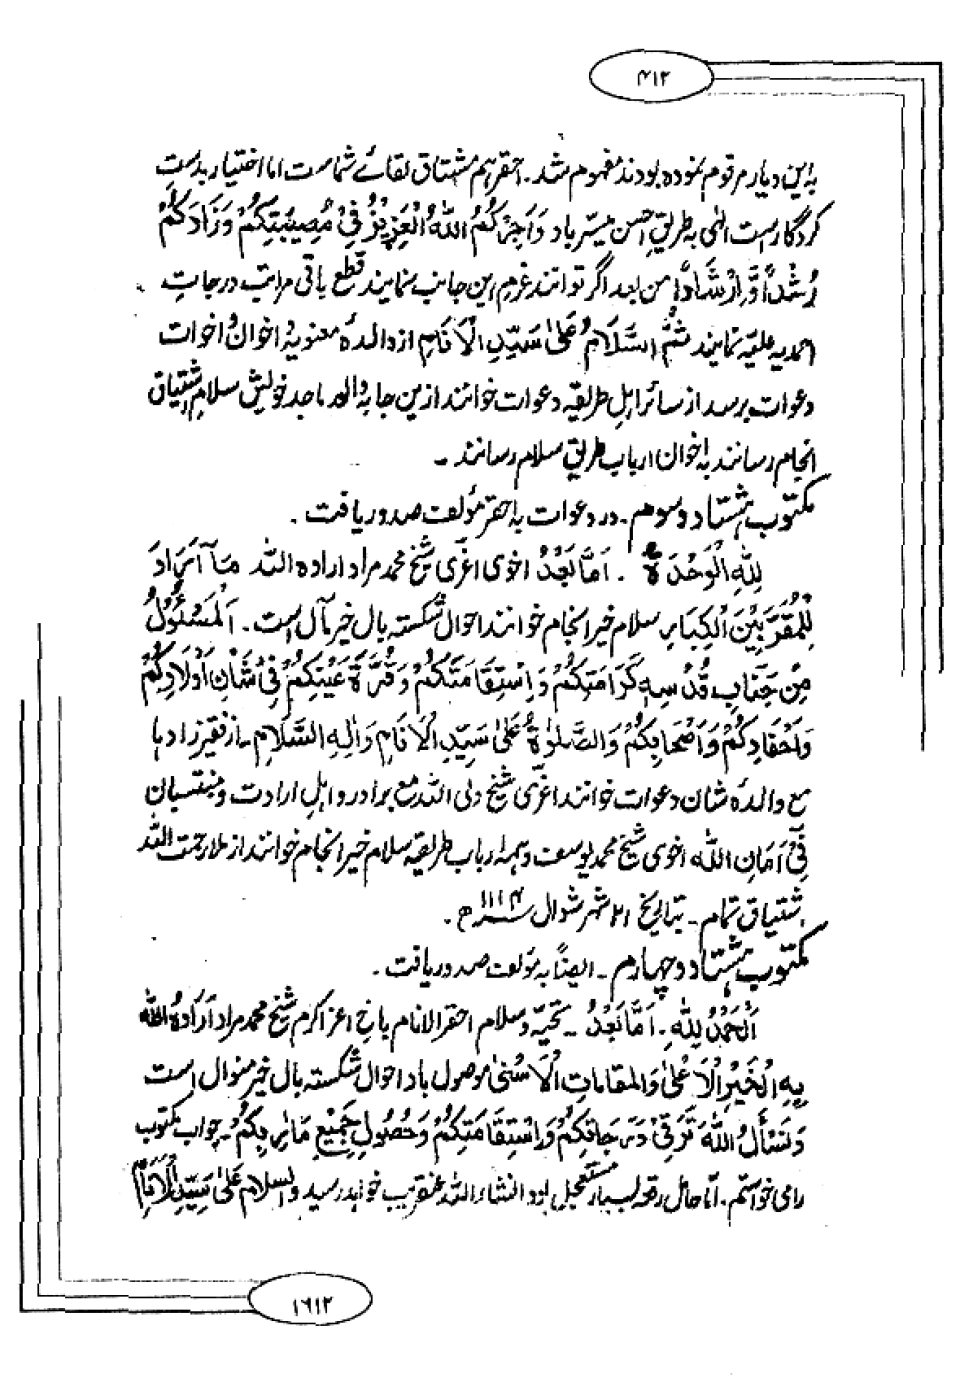 ۴۱۲
باین دیار مرقوم نموده بودند مفهوم شد۔ احقر ہم مشتاق لقائے شماست اما اختیار بدست
کردگارست الٰہی بہ طریقِ احسن میسّر باد وَاَجَرَکُمُ اللہُ الْعَزِیْزُ فِیْ مُصِیْبَتِکُمْ وَزَادَکُمْ
رُشْدًا وَّاِرْشَادًا من بعد اگر توانند عزم این جانب نمایند قطع باقی مراتب درجاتِ
احمدیہ علیّہ نمایند ثُمَّ السَّلَامُ عَلٰی سَیِّدِ الْاَنَامِ از والدهٔ معنویہ و اخوان و اخوات
دعوات برسد از سائر اہلِ طریقہ دعوات خوانند ازین جا بہ والد ماجد خویش سلامِ اشتیاق
انجام رسانند بہ اخوان ارباب طریق سلام رسانند ۔
مکتوب ہشتاد و سوم ۔ در دعوات بہ احقر مؤلف صدور یافت ۔
لِلّٰہِ الْوَحْدَۃُ ۔ اَمَّا بَعْدُ اخوی اعزّی شیخ محمد مراد ارادہ اللہ مَآ اَرَادَ
لِلْمُقَرَّبِیْنَ الْکِبَارِ سلام خیر انجام خوانند احوال شکستہ بال خیر مآل است ۔ اَلْمَسْئُوْلُ
مِنْ جَنَابِ قُدْسِہٖ کَرَامَتِکُمْ وَاِسْتِقَامَتَکُمْ وَقُرَّۃَ عَیْنِکُمْ فِیْ شَانِ اَوْلَادِکُمْ
وَاَحْفَادِکُمْ وَاَصْحَابِکُمْ وَالصَّلٰوۃُ عَلٰی سَیِّدِ الْاَنَامِ وَاٰلِہِ السَّلَامِ ۔ از فقیر زادہا
مع والدہ شان دعوات خوانند اعزّی شیخ ولی اللہ مع برادر و اہلِ ارادت و منتسبان
فِیْ اَمَانِ اللہ اخوی شیخ محمد یوسف و ہمہ ارباب طریقہ سلام خیر انجام خوانند از ملا رحمت اللہ
اشتیاق تمام ۔ بتاریخ ۲۱ شہر شوال ۱۱۱۴ھ ۔
مکتوب ہشتاد و چہارم ۔ ایضًا بہ مؤلف صدور یافت ۔
اَلْحَمْدُ لِلّٰہِ ۔ اَمَّا بَعْدُ ۔ تحیّہ و سلام احقر الانام باخ اعز اکرم شیخ محمد مراد اَرَادَہُ اللہُ
بِہِ الْخَیْرَ الْاَعْلٰی وَالْمقاماتِ الْاَسْنٰی موصول باد احوال شکستہ بال خیر منوال است
وَنَسْأَلُ اللہَ تَرَقِّیْ دَرَجَاتِکُمْ وَاسْتِقَامَتِکُمْ وَحُصُوْلِ جَمِیْعِ مَاٰرِبِکُمْ ۔ جواب مکتوب
را می خواستم ۔ امّا حامل رقعہ بسیار مستعجل بود انشاء اللہ عنقریب خواہد رسید والسلام عَلٰی سَیِّدِ الْاَنَامِ
۱۶۱۲